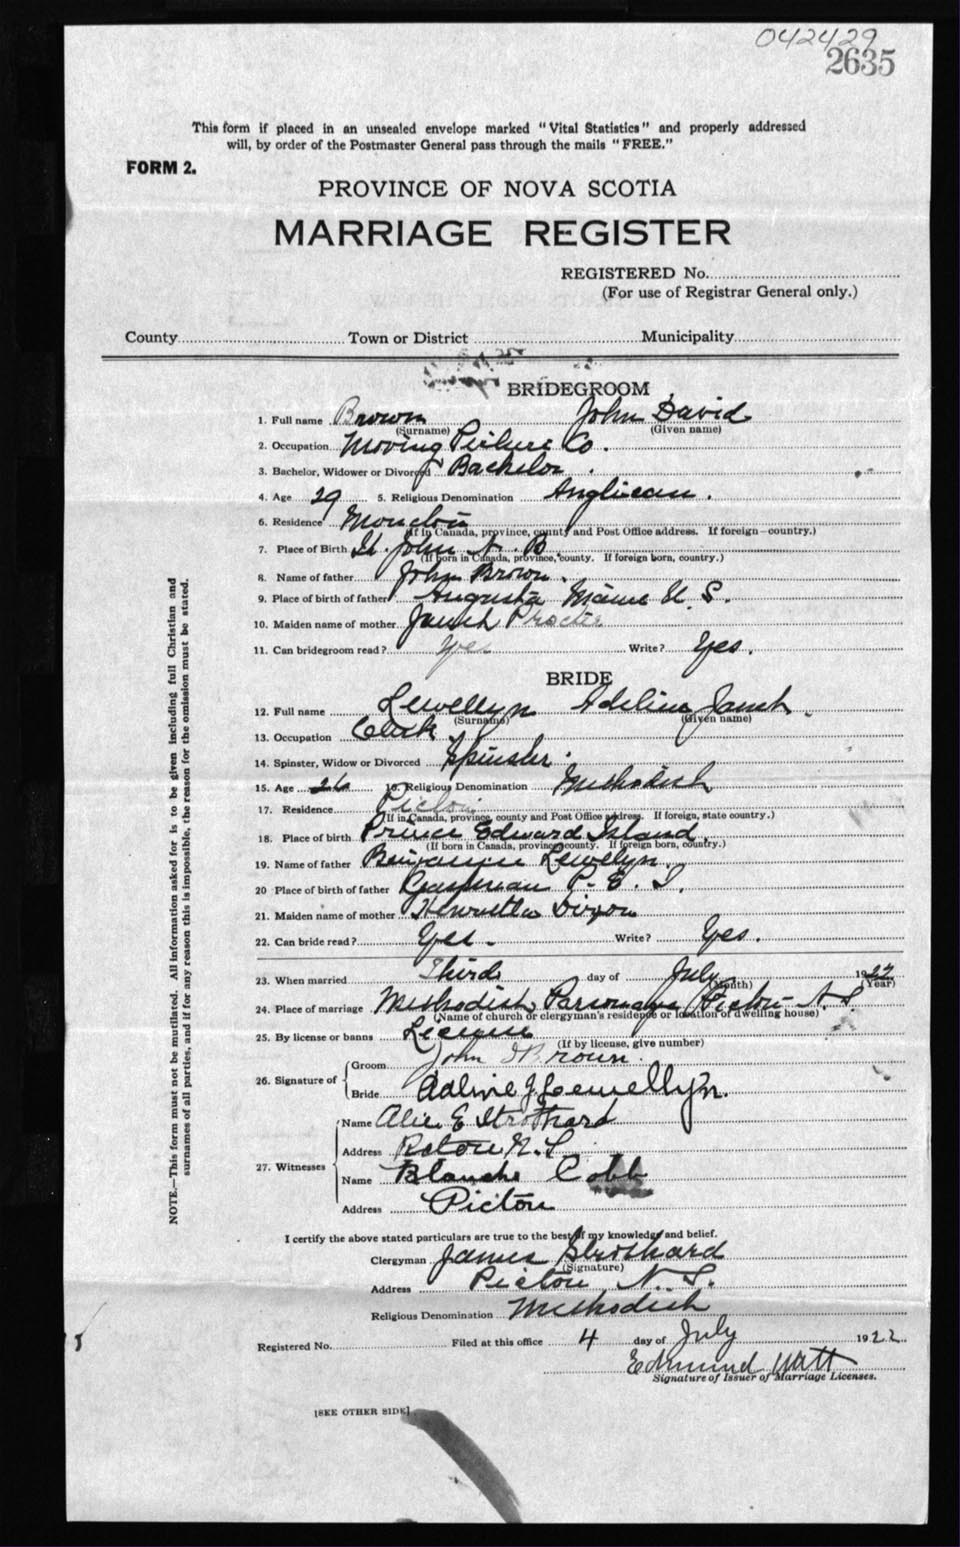 042429
2635
This form if placed in an unsealed envelope marked "Vital Statistics" and properly addressed
will, by order of the Postmaster General pass through the mails "FREE."
FORM 2.
PROVINCE OF NOVA SCOTIA
MARRIAGE REGISTER
REGISTERED No.
(For use of Registrar General only.)
County Town or District Municipality
BRIDEGROOM
1. Full name Brown John David
(Surname) (Given name)
2. Occupation Moving Picture Co.
3. Bachelor, Widower or Divorced Bachelor.
4. Age 29 5. Religious Denomination Anglican.
6. Residence Moncton
(If in Canada, province, county and Post Office address. If foreign—country.)
7. Place of Birth St. John N. B
(If born in Canada, province, county. If foreign born, country.)
8. Name of father John Brown.
9. Place of birth of father Augusta Maine U. S.
10. Maiden name of mother Procter
11. Can bridegroom read? Yes Write? Yes.
BRIDE
12. Full name Lewellyn Adeline Janet.
(Surname) (Given name)
13. Occupation Clerk.
14. Spinster, Widow or Divorced Spinster.
15. Age 26 16. Religious Denomination Methodist
17. Residence Pictou
(If in Canada, province, county and Post Office address. If foreign, state country.)
18. Place of birth Prince Edward Island.
(If born in Canada, province, county. If foreign born, country.)
19. Name of father Benjamin Lewelyn.
20 Place of birth of father P. E. I.
21. Maiden name of mother Henrietta Dixon
22. Can bride read? Yes. Write? Yes.
23. When married Third day of July 1922
(Month) (Year)
24. Place of marriage Methodist Parsonage Pictou N. S.
(Name of church or clergyman's residence or location of dwelling house)
25. By license or banns License
(If by license, give number)
26. Signature of Groom John D Brown.
Bride Adline J. Lewellyn.
27. Witnesses Name Alice E Strothard
Address Pictou N. S
Name Blanche Cobb
Address Pictou
I certify the above stated particulars are true to the best of my knowledge and belief.
Clergyman James Strothard
(Signature)
Address Pictou N. S.
Religious Denomination Methodist
Registered No. Filed at this office 4 day of July 1922.
Edmund Watt
Signature of Issuer of Marriage Licenses.
[SEE OTHER SIDE]
NOTE.—This form must not be mutilated. All information asked for is to be given including full Christian and
surnames of all parties, and if for any reason this is impossible, the reason for the omission must be stated.